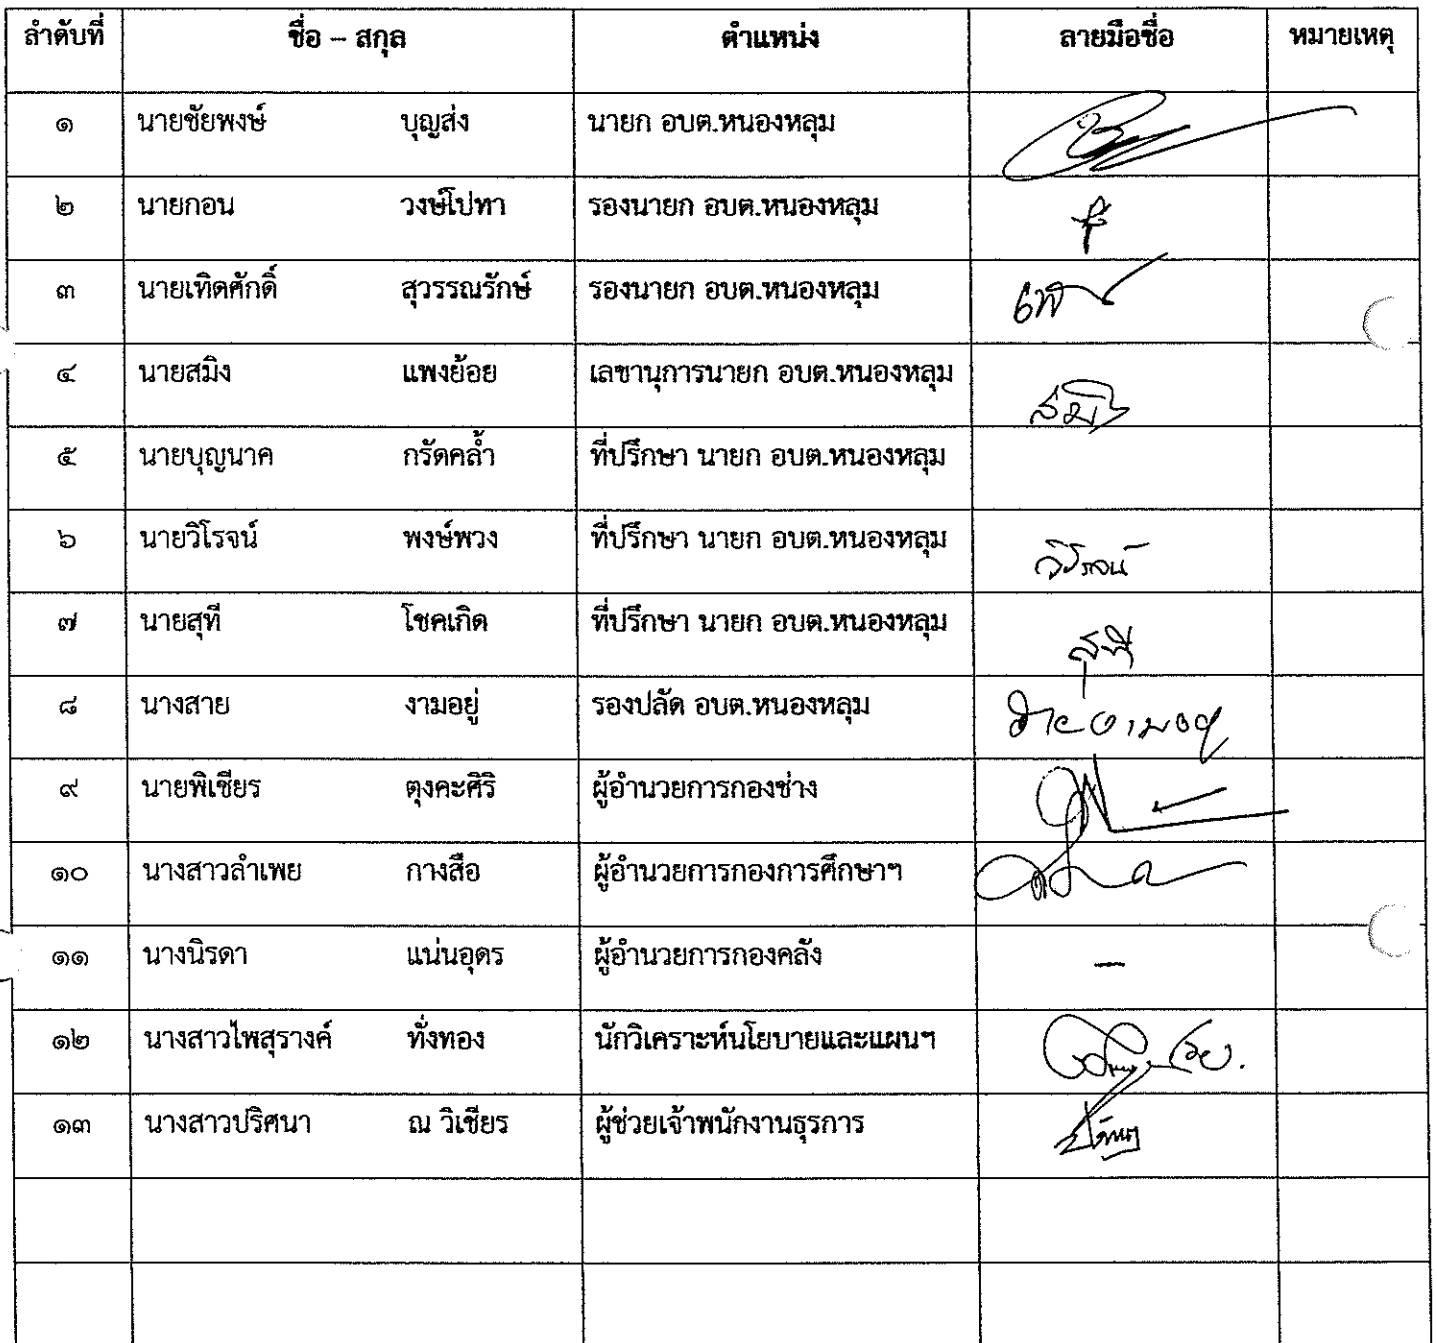 ลำดับที่ ชื่อ – สกุล ตำแหน่ง ลายมือชื่อ หมายเหตุ
๑ นายชัยพงษ์ บุญส่ง นายก อบต.หนองหลุม
๒ นายกอน วงษ์โปทา รองนายก อบต.หนองหลุม
๓ นายเทิดศักดิ์ สุวรรณรักษ์ รองนายก อบต.หนองหลุม
๔ นายสมิง แพงย้อย เลขานุการนายก อบต.หนองหลุม สมิง
๕ นายบุญนาค กรัดคล้ำ ที่ปรึกษา นายก อบต.หนองหลุม
๖ นายวิโรจน์ พงษ์พวง ที่ปรึกษา นายก อบต.หนองหลุม วิโรจน์
๗ นายสุที โชคเกิด ที่ปรึกษา นายก อบต.หนองหลุม สุที
๘ นางสาย งามอยู่ รองปลัด อบต.หนองหลุม
๙ นายพิเชียร ตุงคะศิริ ผู้อำนวยการกองช่าง
๑๐ นางสาวลำเพย กางสือ ผู้อำนวยการกองการศึกษาฯ
๑๑ นางนิรดา แน่นอุดร ผู้อำนวยการกองคลัง –
๑๒ นางสาวไพสุรางค์ ทั่งทอง นักวิเคราะห์นโยบายและแผนฯ
๑๓ นางสาวปริศนา ณ วิเชียร ผู้ช่วยเจ้าพนักงานธุรการ